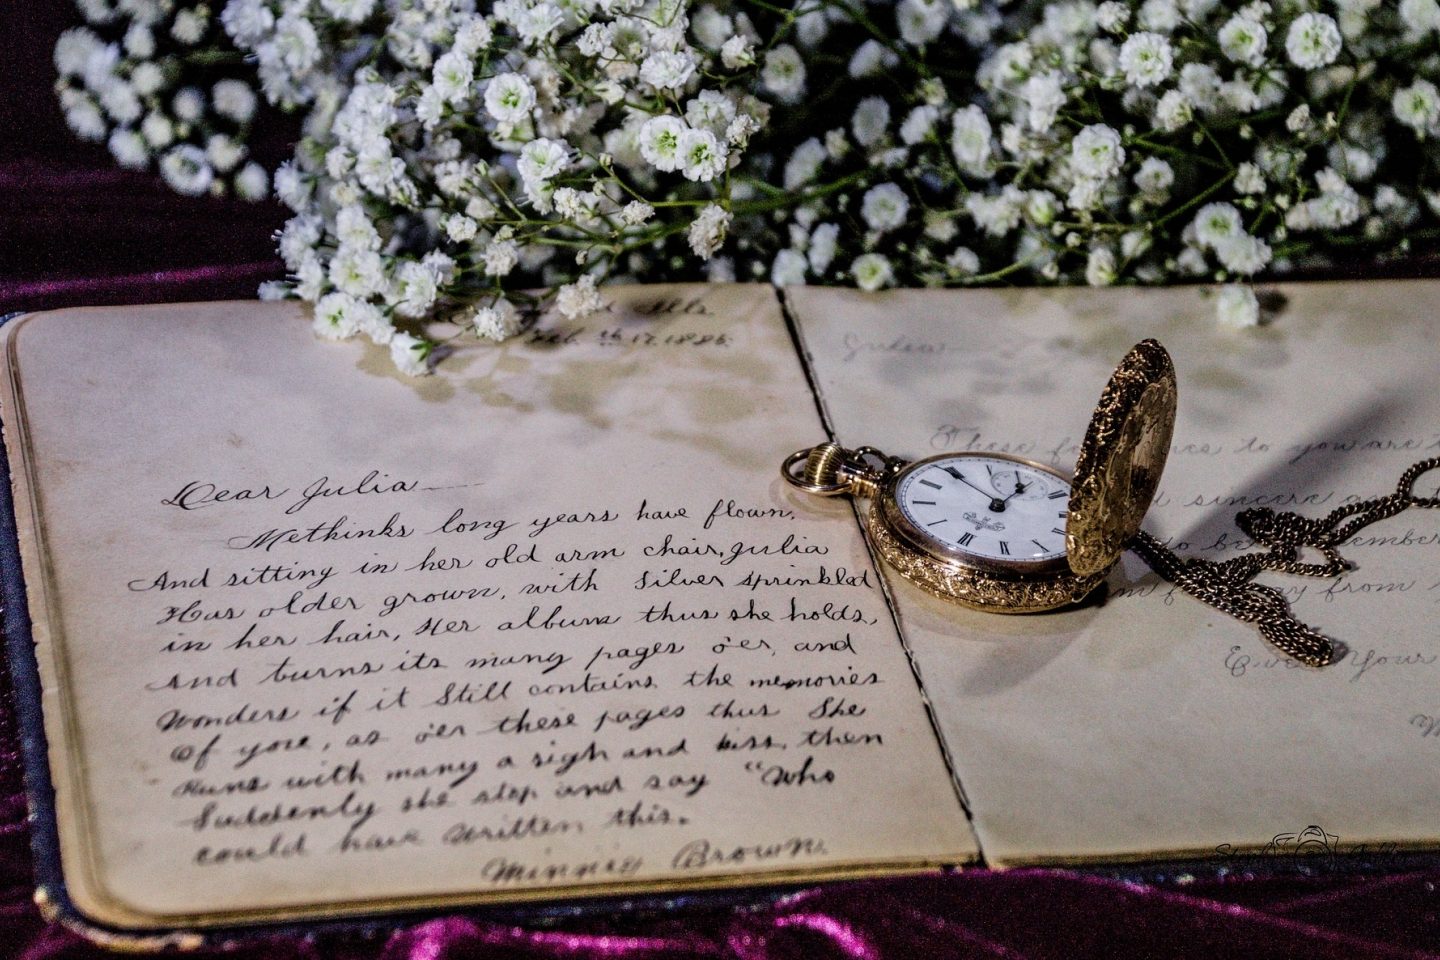 Ills
Feb. 17, 1886.
Dear Julia —
Methinks long years have flown,
And sitting in her old arm chair, Julia
Has older grown, with Silver sprinkled
in her hair, Her album thus she holds,
And turns its many pages o'er, and
Wonders if it Still contains the memories
Of yore, as o'er these pages thus She
Runs with many a sigh and kiss, then
Suddenly she stop and say "Who
could have Written this.
Minnie Brown.
Julia
These to you are
sincere
to be
from
Ever Your